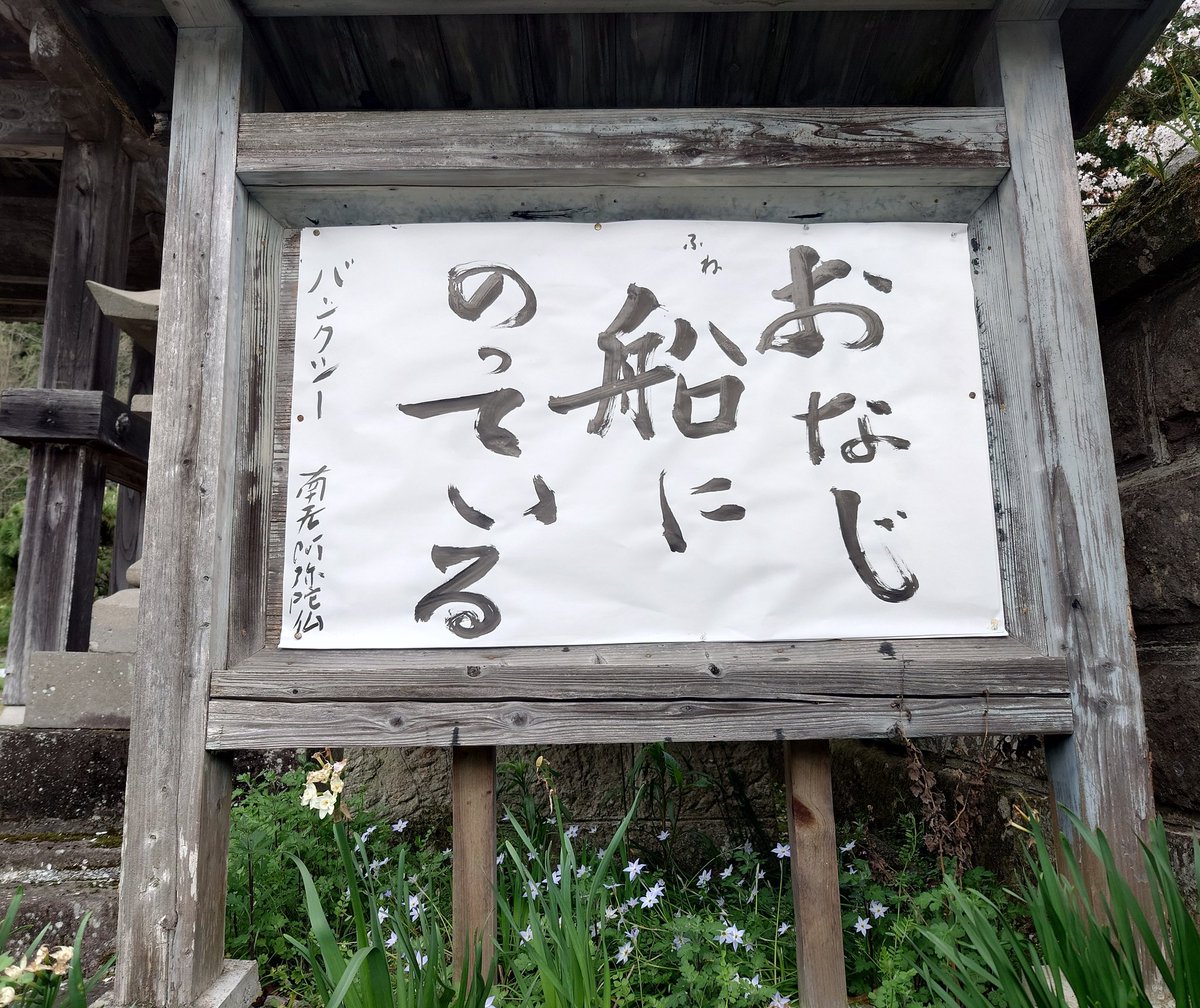 おなじ
ふね
船に
のっている
バンクシー 南无阿弥陀仏